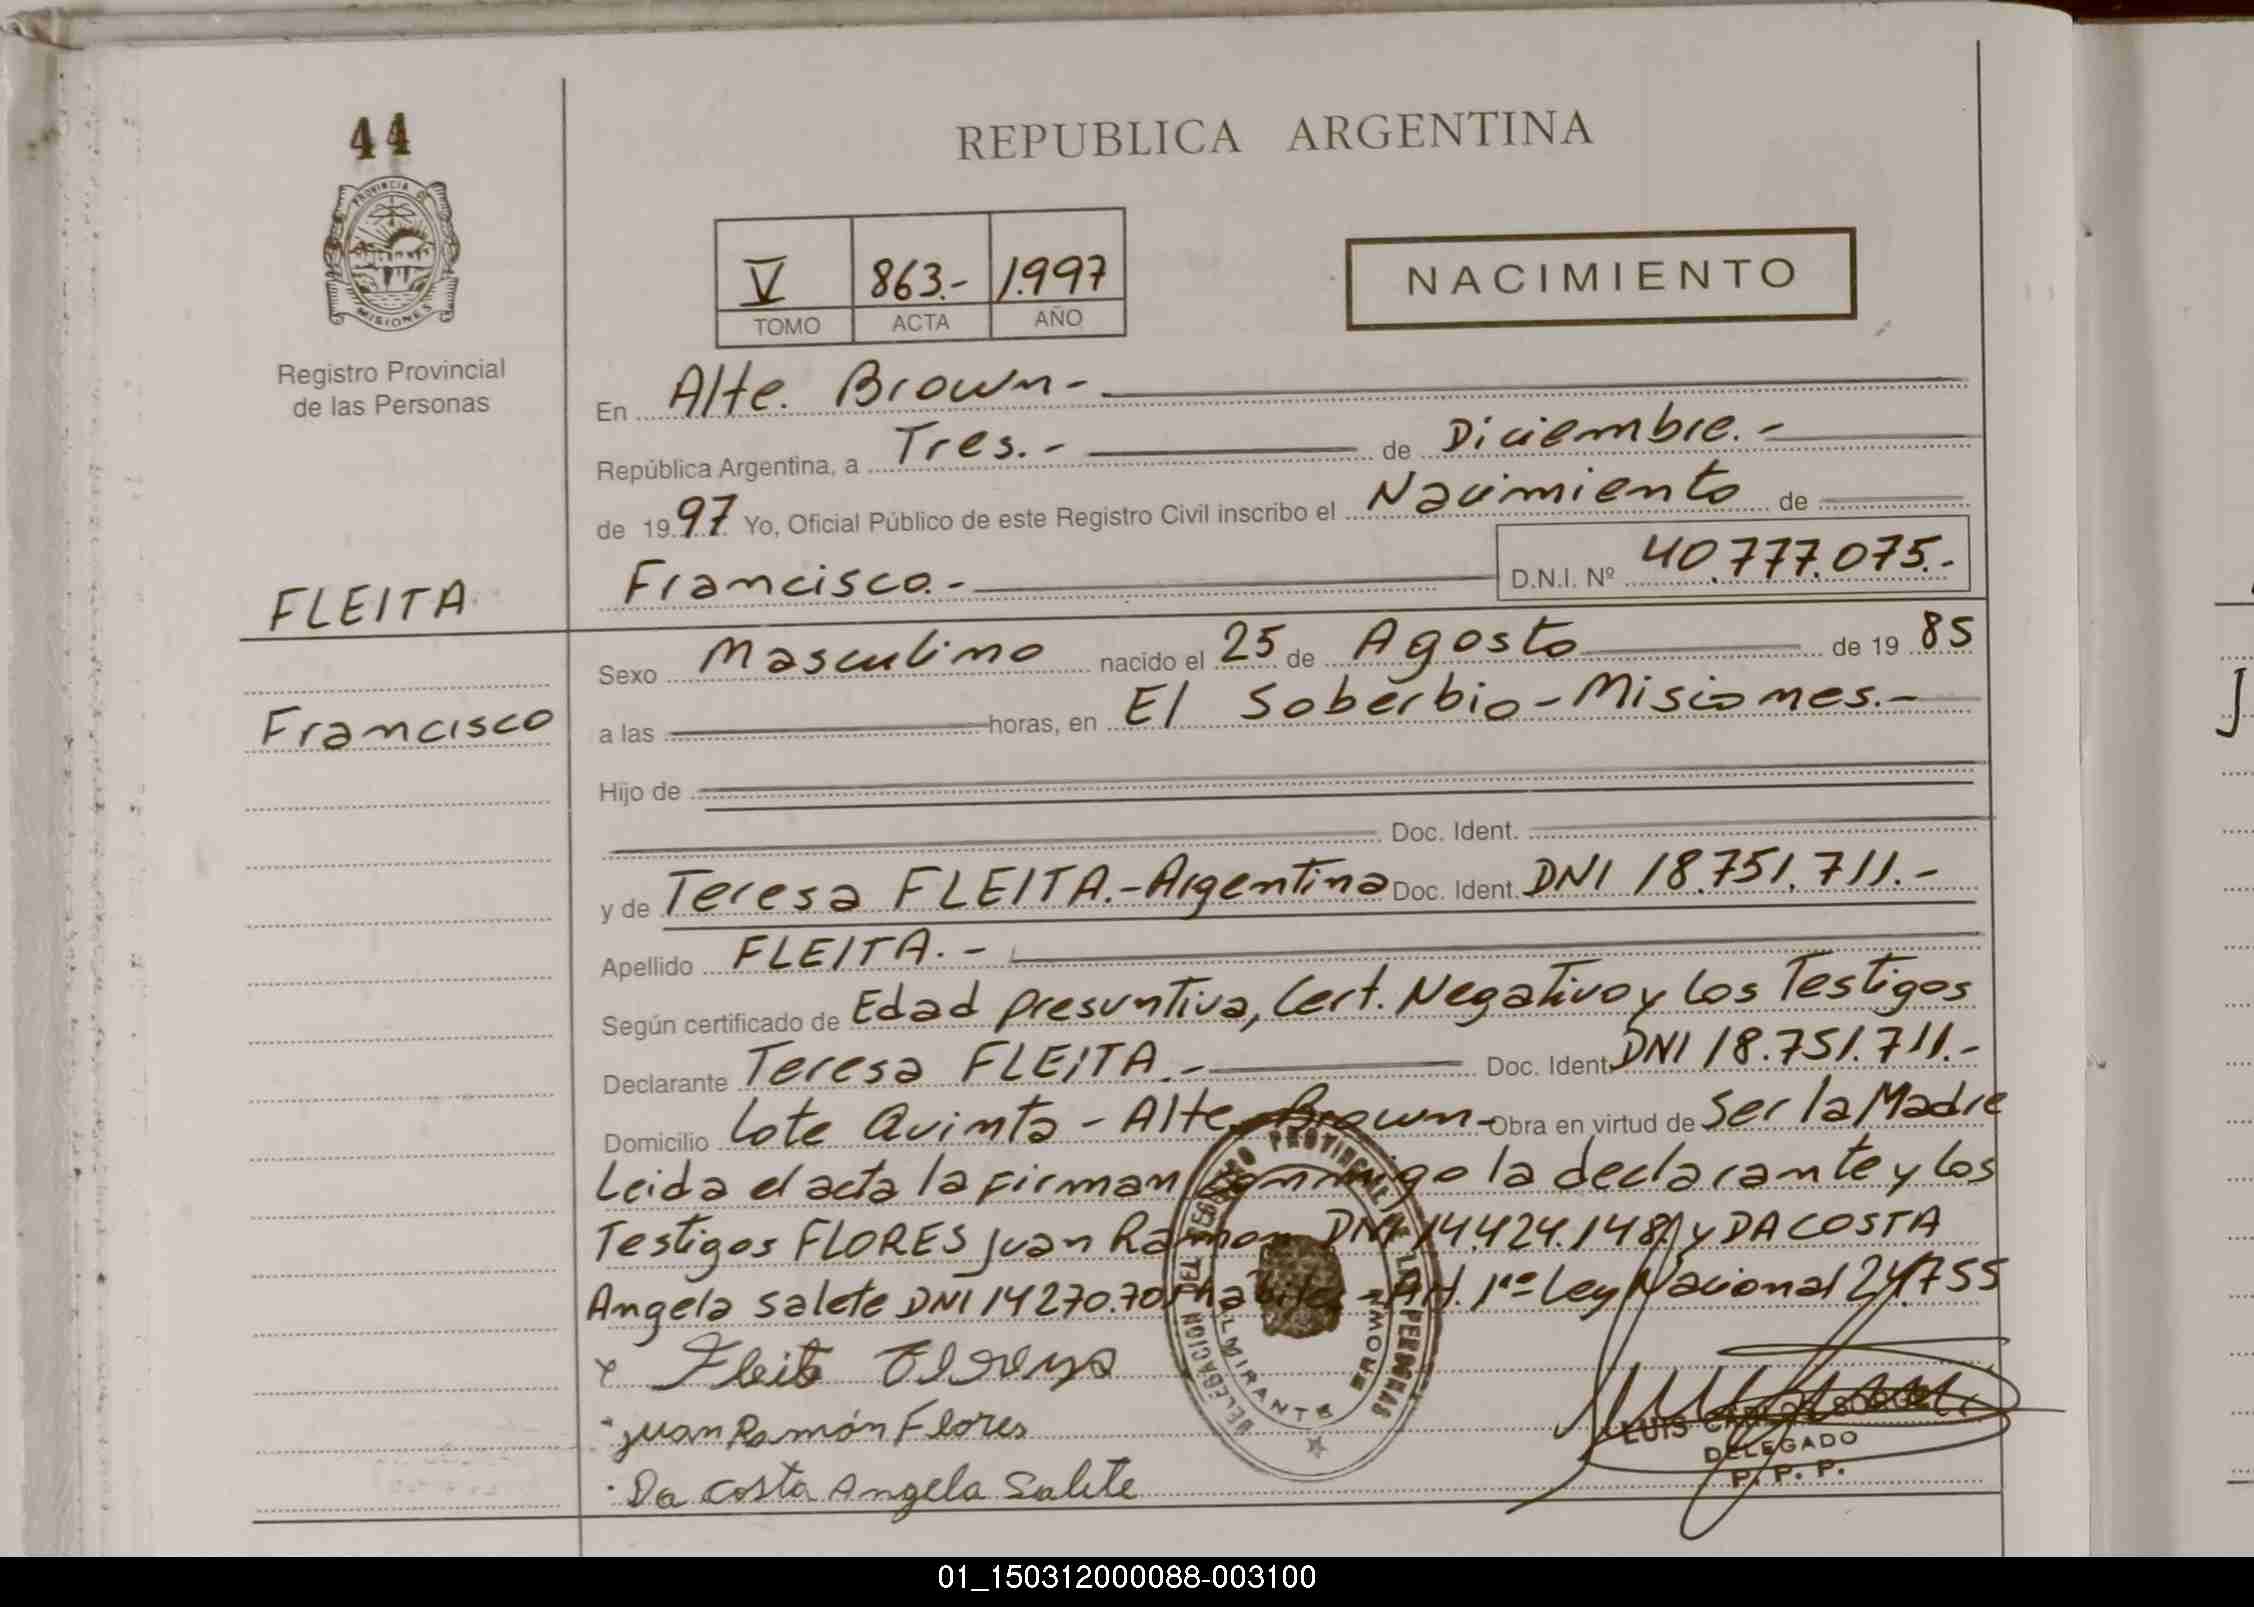 44
REPUBLICA ARGENTINA
PROVINCIA DE
MISIONES
Registro Provincial
de las Personas
V 863.- 1.997
TOMO ACTA AÑO
NACIMIENTO
En Alte. Brown-
República Argentina, a Tres.- de Diciembre.-
de 1997 Yo, Oficial Público de este Registro Civil inscribo el Nacimiento de
FLEITA
Francisco.- D.N.I. Nº 40.777.075.-
Sexo Masculino nacido el 25 de Agosto de 1985
Francisco
a las horas, en El Soberbio-Misiones.-
Hijo de
Doc. Ident.
y de Teresa FLEITA.-Argentina Doc. Ident. DNI 18.751.711.-
Apellido FLEITA.-
Según certificado de Edad presuntiva, Cert. Negativo y los Testigos
Declarante Teresa FLEITA.- Doc. Ident. DNI 18.751.711.-
Domicilio Lote Quinta - Alte. Brown- Obra en virtud de Ser la Madre
Leida el acta la firman conmigo la declarante y los
Testigos FLORES Juan Ramon DNI 14.424.148 y DA COSTA
Angela Salete DNI 14270.705 habiles - Art. 1ro Ley Nacional 24.755
Fleita
Juan Ramón Flores
Da costa Angela Salete
DELEGACION DEL REGISTRO PROVINCIAL DE LAS PERSONAS
ALMIRANTE BROWN
LUIS
DELEGADO
P. P. P.
01_150312000088-003100